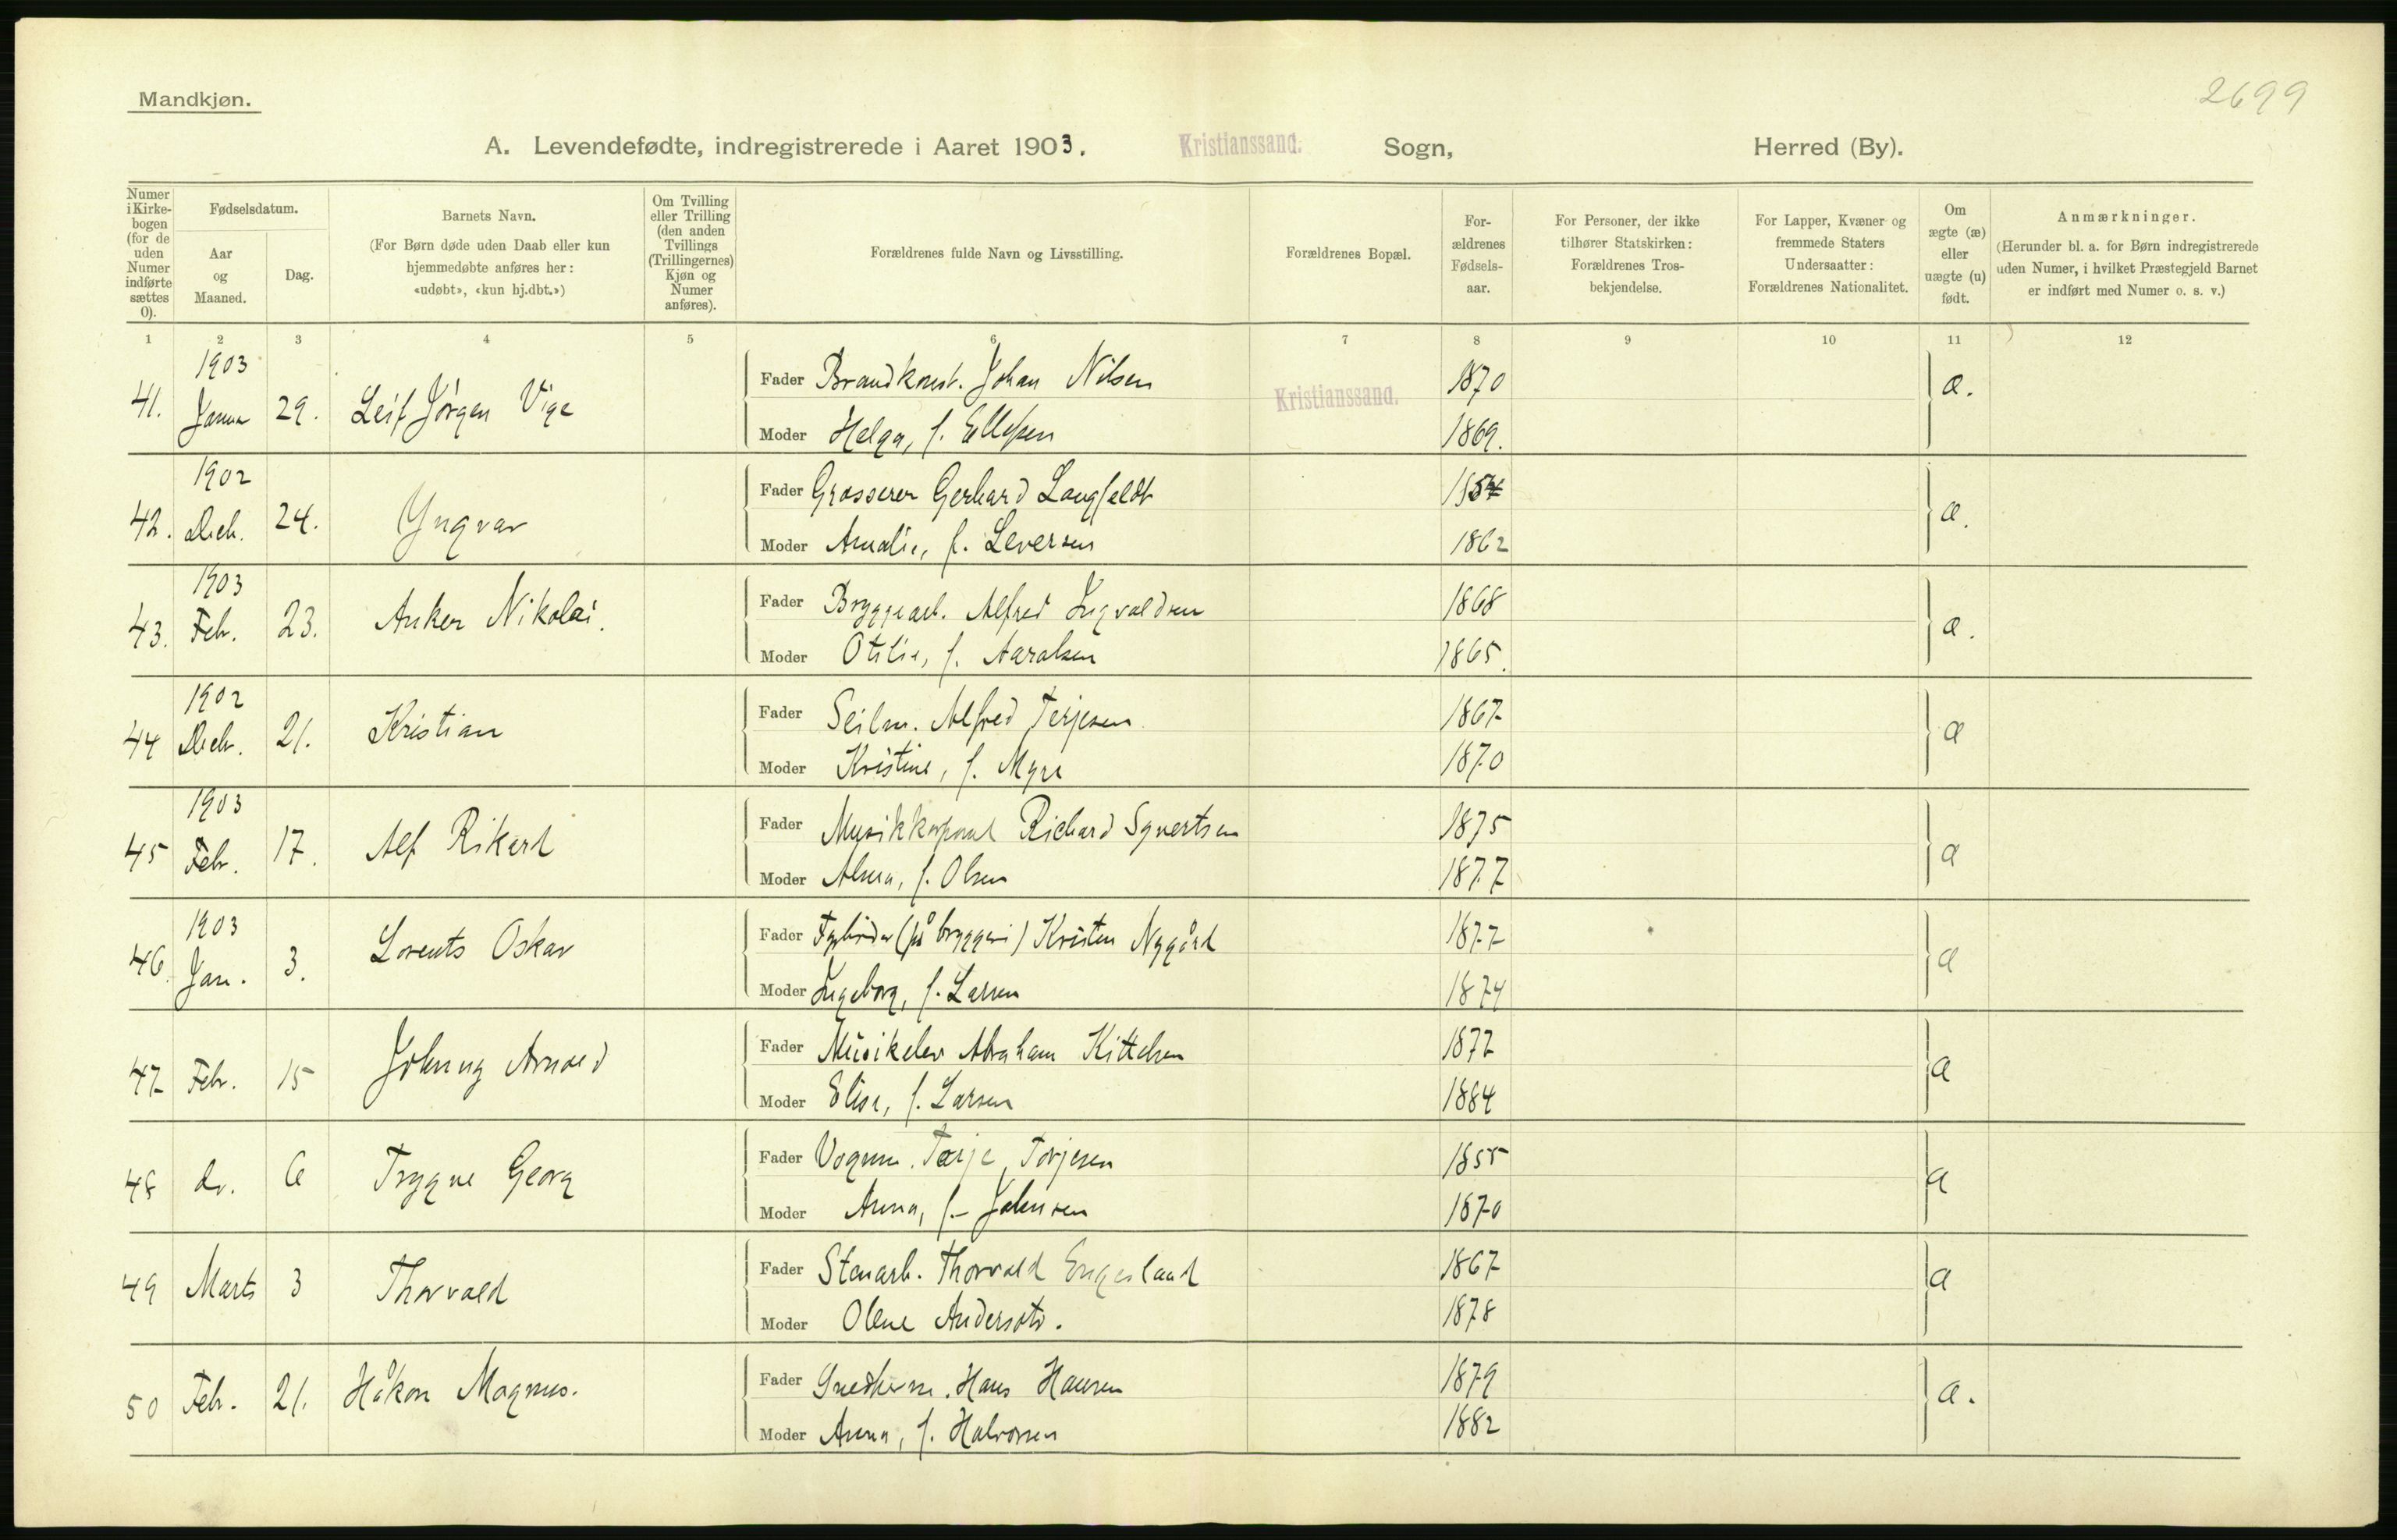 2699
Mandkjøn.
A. Levendefødte, indregistrerede i Aaret 1903. Kristianssand. Sogn, Herred (By).
Numer i Kirke-bogen (for de uden Numer indførte sættes 0).
Fødselsdatum.
Aar og Maaned.
Dag.
Barnets Navn.
(For Børn døde uden Daab eller kun hjemmedøbte anføres her: «udøbt», «kun hj.dbt.»)
Om Tvilling eller Trilling (den anden Tvillings (Trillingernes) Kjøn og Numer anføres).
Forældrenes fulde Navn og Livsstilling.
Forældrenes Bopæl.
For-ældrenes Fødsels-aar.
For Personer, der ikke tilhører Statskirken: Forældrenes Tros-bekjendelse.
For Lapper, Kvæner og fremmede Staters Undersaatter: Forældrenes Nationalitet.
Om ægte (æ) eller uægte (u) født.
Anmærkninger.
(Herunder bl. a. for Børn indregistrerede uden Numer, i hvilket Præstegjeld Barnet er indført med Numer o. s. v.)
1 2 3 4 5 6 7 8 9 10 11 12
41. 1903 Janua 29. Leif Jörgen Vige Fader Brandkonst. Johan Nilsen Kristianssand. 1870 æ.
Moder Helga, f. Ellefsen 1869.
42. 1902 Decb. 24. Yngvar Fader Grosserer Gerhard Langfeldt æ.
Moder Amalie, f. Seversen 1862
43. 1903 Feb. 23. Anker Nikolai. Fader Bryggearb. Alfred Ingvaldsen 1868 æ.
Moder Otilie, f. Aaralsen 1865.
44 1902 Decbr. 21. Kristian Fader Seilm. Alfred Terjesen 1867 æ
Moder Kristine, f. Myre 1870
45 1903 Febr. 17. Alf Rikard Fader Musikkorporal Richard Syvertsen 1875 æ
Moder Alma, f. Olsen 1877
46. 1903 Jan. 3. Lorents Oskar Fader (på bryggeri) Kristen Nygård 1877 æ
Moder Ingeborg, f. Larsen 1874
47 Febr. 15 Johnny Arnold Fader Musikelev Abraham Kittelsen 1877 æ
Moder Elise, f. Larsen 1884
48 do. 6 Trygve Georg Fader Vognm. Tarje Torjesen 1855 æ
Moder Anna, f. Johnsen 1870
49 Marts 3 Thorvald Fader Stenarb. Thorvald Engesland 1867 æ
Moder Olene Andersdtr. 1878
50 Feb. 21. Håkon Magnus. Fader Snedkerm. Hans Hansen 1879 æ.
Moder Anna, f. Halvorsen 1882